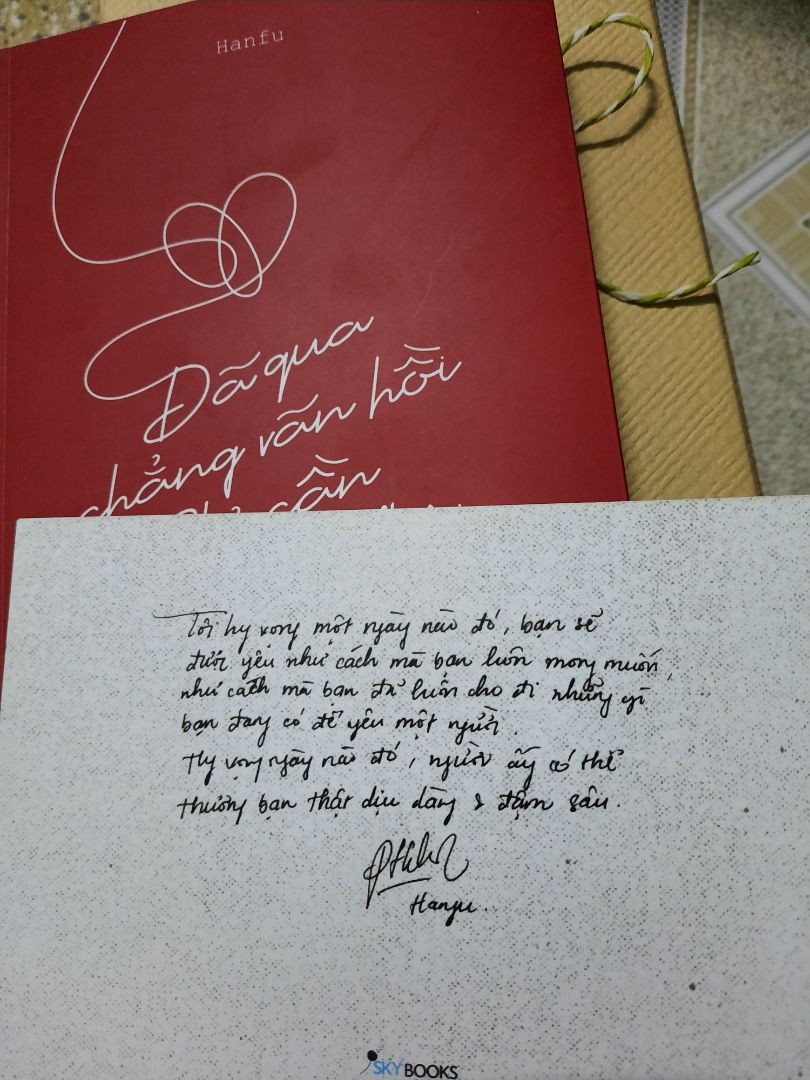 Hanfu
Đã qua
chẳng vãn hồi
cần
Tôi hy vọng một ngày nào đó, bạn sẽ
được yêu như cách mà bạn luôn mong muốn,
như cách mà bạn đã luôn cho đi những gì
bạn đang có để yêu một người.
Hy vọng ngày nào đó, người ấy có thể
thương bạn thật dịu dàng & đậm sâu.
Hanfu.
SKYBOOKS